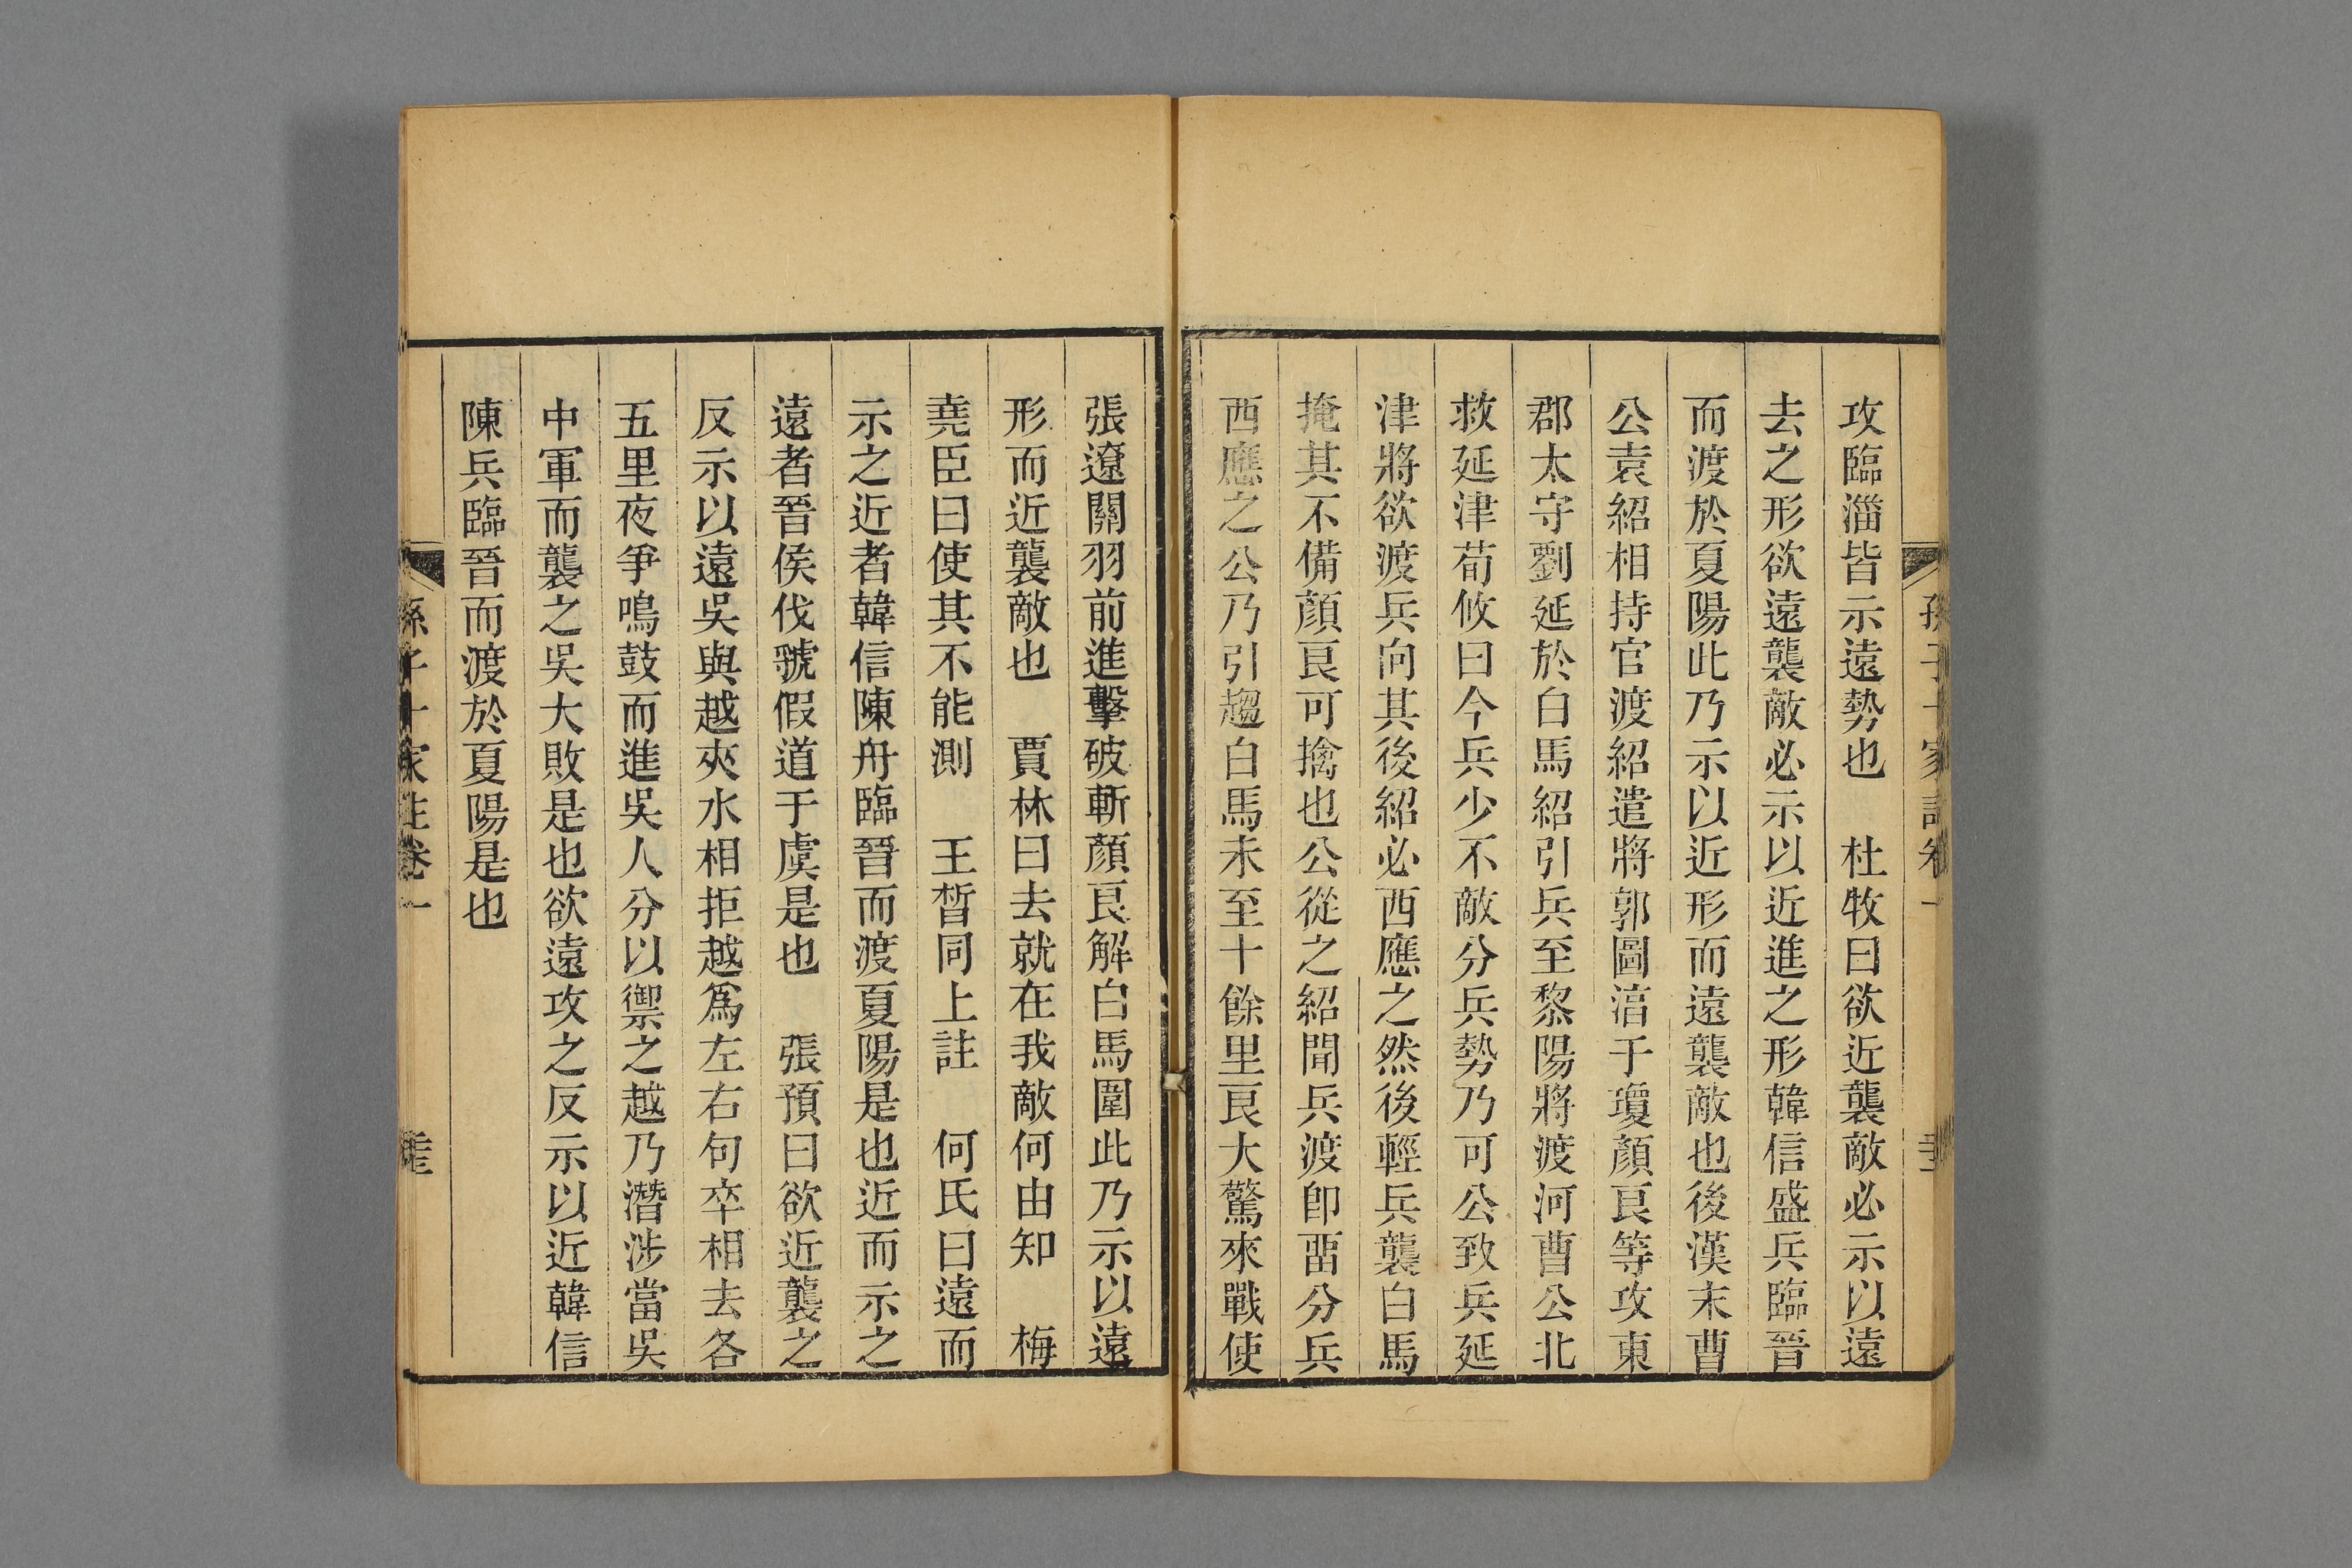 攻臨淄皆示遠勢也　杜牧曰欲近襲敵必示以遠
去之形欲遠襲敵必示以近進之形韓信盛兵臨晉
而渡於夏陽此乃示以近形而遠襲敵也後漢末曹
公袁紹相持官渡紹遣將郭圖淯于瓊顏良等攻東
郡太守劉延於白馬紹引兵至黎陽將渡河曹公北
救延津荀攸曰今兵少不敵分兵勢乃可公致兵延
津將欲渡兵向其後紹必西應之然後輕兵襲白馬
掩其不備顏良可擒也公從之紹聞兵渡卽畱分兵
西應之公乃引趨白馬未至十餘里良大驚來戰使
張遼關羽前進擊破斬顏良解白馬圍此乃示以遠
形而近襲敵也　賈林曰去就在我敵何由知　梅
堯臣曰使其不能測　王晳同上註　何氏曰遠而
示之近者韓信陳舟臨晉而渡夏陽是也近而示之
遠者晉侯伐虢假道于虞是也　張預曰欲近襲之
反示以遠吳與越夾水相拒越爲左右句卒相去各
五里夜爭鳴鼓而進吳人分以禦之越乃潛涉當吳
中軍而襲之吳大敗是也欲遠攻之反示以近韓信
陳兵臨晉而渡於夏陽是也
孫子十家註卷一